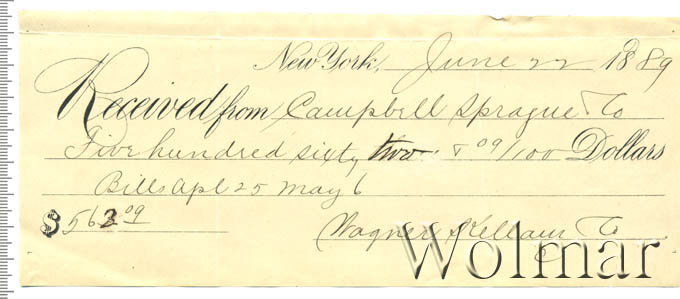 New York, June 22 1889
Received from Campbell Sprague & Co
Five hundred sixty two & 09/100 Dollars
Bills Apl 25 May 6
$562 09
Wagner & Co
Wolmar